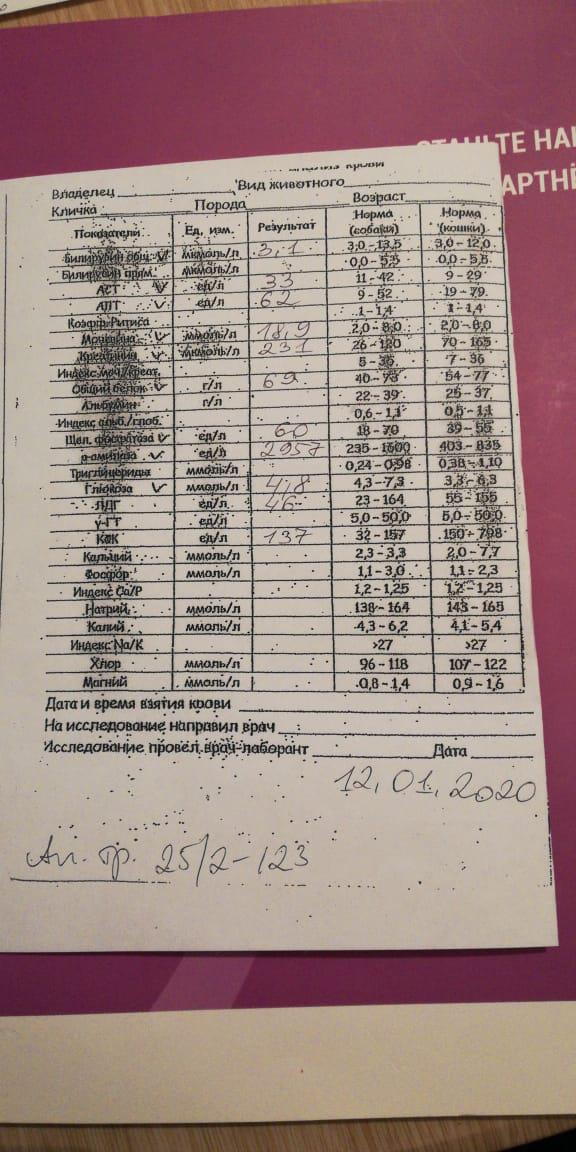 СТАНЬТЕ НАШ
АРТНЁ
анализ крови
Владелец Вид животного
Кличка Порода Возраст
Показатели Ед. изм. Результат Норма (собаки) Норма (кошки)
Билирубин общ. V мкмоль/л 3,1 3,0-13,5 3,0-12,0
Билирубин прям. мкмоль/л 0,0-5,5 0,0-5,5
АСТ V ед/л 33 11-42 9-29
АЛТ V ед/л 62 9-52 19-79
Коэфф. Ритиса 1-1,4 1-1,4
Мочевина V ммоль/л 18,9 2,0-8,0 2,0-8,0
Креатинин V мкмоль/л 231 26-130 70-165
Индекс моч/креат. 8-36 7-36
Общий белок V г/л 69 40-73 54-77
Альбумин г/л 22-39 25-37
Индекс альб./глоб. 0,6-1,1 0,5-1,1
Щел. фосфатаза V ед/л 60 18-70 39-55
α-амилаза V ед/л 2957 235-1600 403-835
Триглицериды ммоль/л 0,24-0,98 0,38-1,10
Глюкоза V ммоль/л 4,8 4,3-7,3 3,3-6,3
ЛДГ ед/л 46 23-164 55-155
γ-ГТ ед/л 5,0-50,0 5,0-50,0
КФК ед/л 137 32-157 150-798
Кальций ммоль/л 2,3-3,3 2,0-7,7
Фосфор ммоль/л 1,1-3,0 1,1-2,3
Индекс Ca/P 1,2-1,25 1,2-1,25
Натрий ммоль/л 138-164 143-165
Калий ммоль/л 4,3-6,2 4,1-5,4
Индекс Na/K >27 >27
Хлор ммоль/л 96-118 107-122
Магний ммоль/л 0,8-1,4 0,9-1,6
Дата и время взятия крови
На исследование направил врач
Исследование провел врач-лаборант Дата
12.01.2020
Ап. гр. 25/2-123